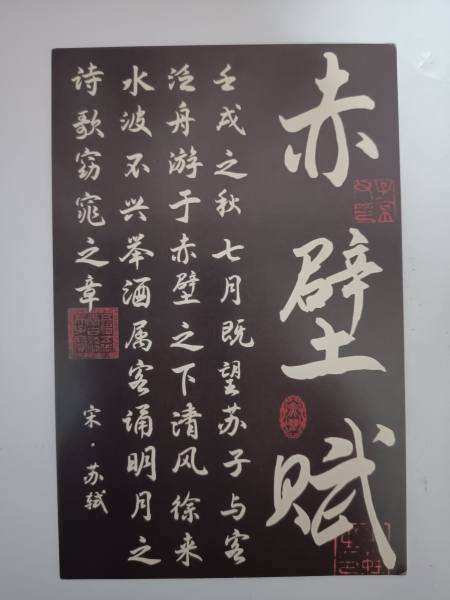 赤壁赋
壬戌之秋七月既望苏子与客
泛舟游于赤壁之下清风徐来
水波不兴举酒属客诵明月之
诗歌窈窕之章
宋·苏轼